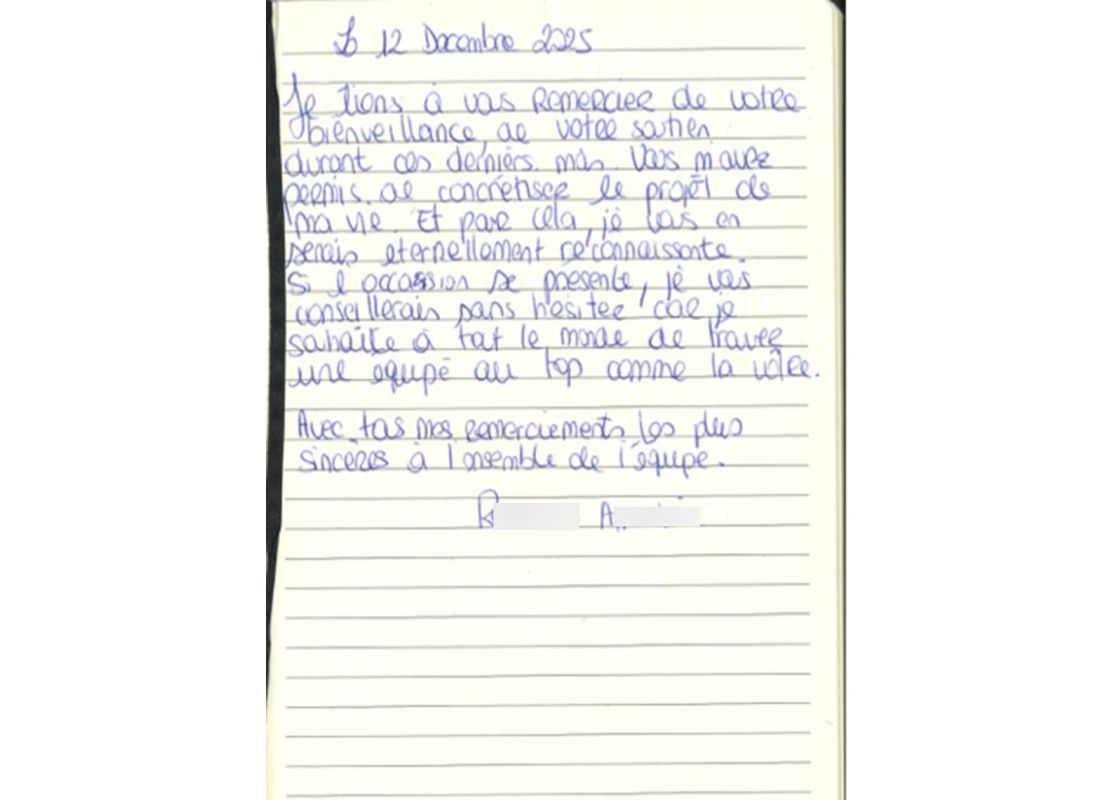 Le 12 Décembre 2025
Je tiens à vous remercier de votre
bienveillance, de votre soutien
durant ces derniers mois. Vous m'avez
permis de concrétiser le projet de
ma vie. Et pour cela, je vous en
serais eternellement reconnaissante.
Si l'occassion se présente, je vous
conseillerais sans hésiter car je
souhaite à tout le monde de trouver
une équipe au top comme la vôtre.
Avec tous mes remerciements les plus
sincères à l'ensemble de l'équipe.